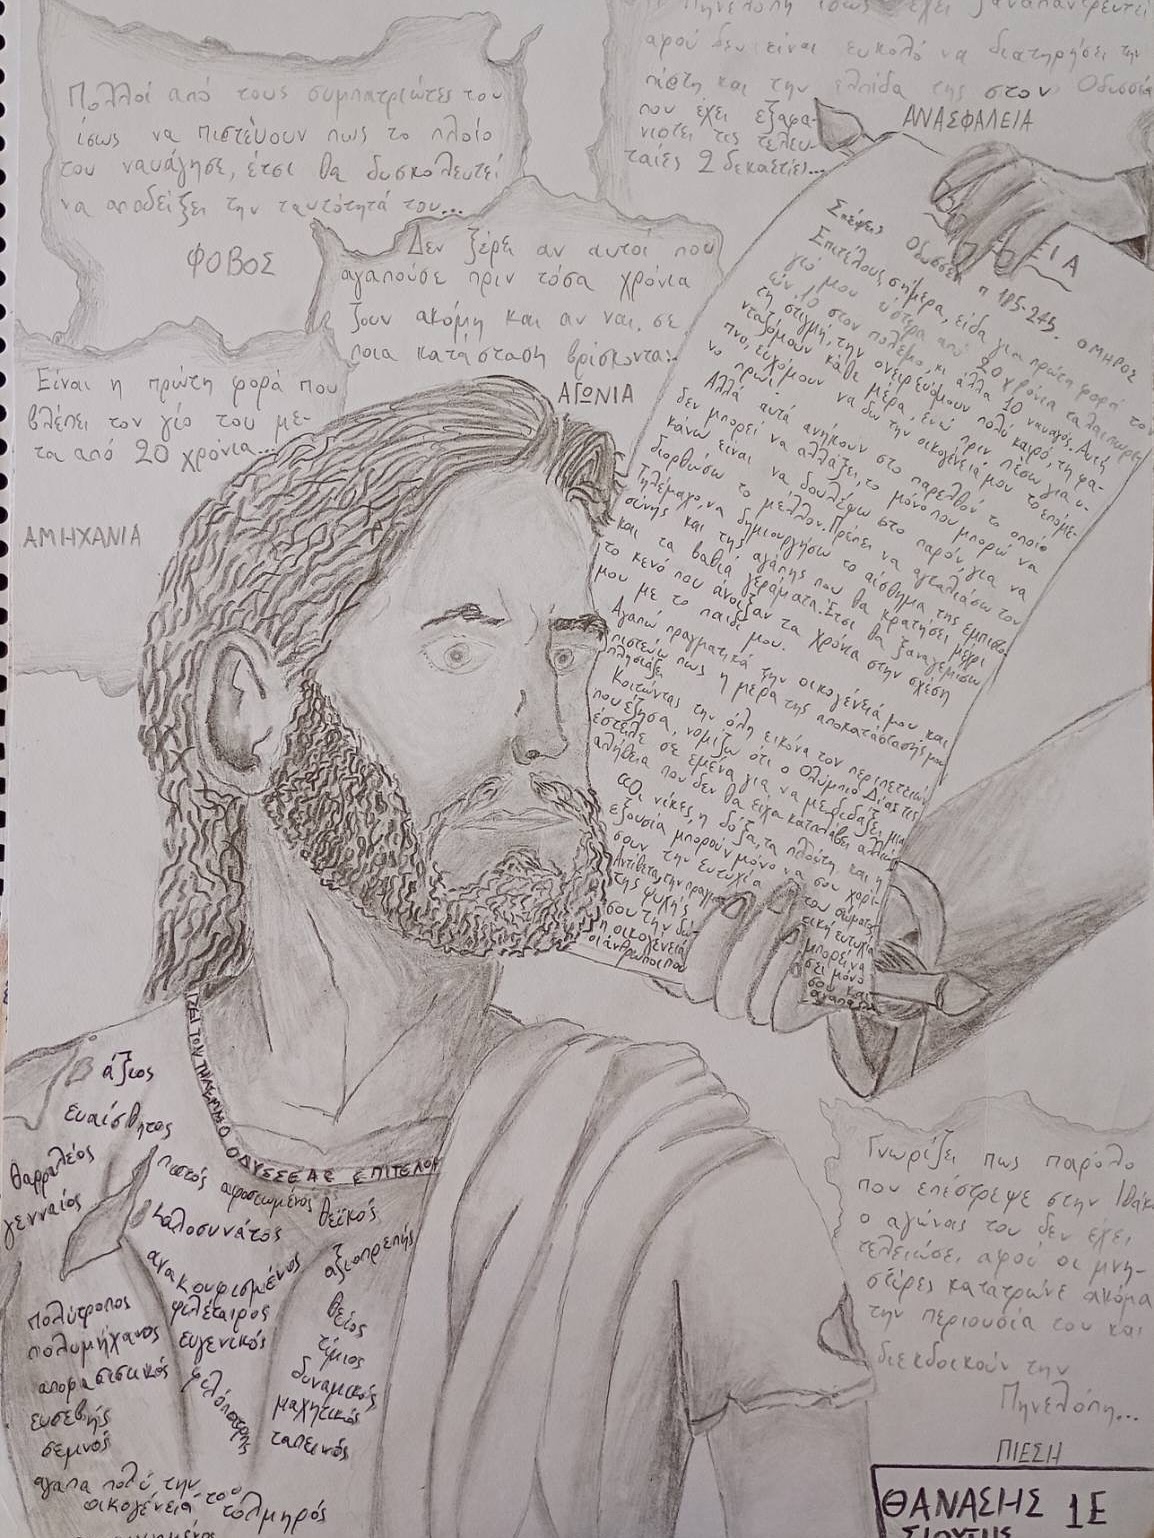 Πολλοί από τους συμπατριώτες του
ίσως να πιστεύουν πως το πλοίο
του ναυάγησε, έτσι θα δυσκολευτεί
να αποδείξει την ταυτότητά του...
ΦΟΒΟΣ
Πηνελόπη ίσως έχει ξαναπαντρευτεί
αφού δεν είναι εύκολο να διατηρήσει την
πίστη και την ελπίδα της στον Οδυσσέα
που έχει εξαφα-
νιστεί τις τελευ-
ταίες 2 δεκαετίες...
ΑΝΑΣΦΑΛΕΙΑ
Δεν ξέρει αν αυτοί που
αγαπούσε πριν τόσα χρόνια
ζουν ακόμη και αν ναι, σε
ποια κατάσταση βρίσκονται.
ΑΓΩΝΙΑ
Είναι η πρώτη φορά που
βλέπει τον γιο του με-
τα από 20 χρόνια...
ΑΜΗΧΑΝΙΑ
ΕΙΑ
Σκέψεις Οδυσσέα π 185-245. ΟΜΗΡΟΣ
Επιτέλους σήμερα, είδα για πρώτη φορά τον
γιό μου ύστερα από 20 χρόνια ταλαιπωρι-
ών, 10 στον πόλεμο κι άλλα 10 ναυαγός. Αυτή
τη στιγμή, την ονειρευόμουν πολύ καιρό, τη φα-
νταζόμουν κάθε μέρα, ενώ πριν πέσω για ύ-
πνο, ευχόμουν να δω την οικογένειά μου το επόμε-
νο πρωί.
Αλλά αυτά ανήκουν στο παρελθόν το οποίο
δεν μπορεί να αλλάξει, το μόνο που μπορώ να
κάνω είναι να δουλέψω στο παρόν, για να
διορθώσω το μέλλον. Πρέπει να αγκαλιάσω τον
Τηλέμαχο, να δημιουργήσω το αίσθημα της εμπιστο-
σύνης και της αγάπης που θα κρατήσει μέχρι
και τα βαθιά γεράματα. Έτσι θα ξαναγεμίσω
το κενό που άνοιξαν τα χρόνια στην σχέση
μου με το παιδί μου.
Αγαπώ πραγματικά την οικογένειά μου και
πιστεύω πως η μέρα της αποκατάστασής μου
πλησιάζει
Κοιτώντας την όλη εικόνα των περιπετειών
που έζησα, νομίζω ότι ο Ολύμπιο Δίας τις
έστειλε σε εμένα για να με διδάξει μια
αλήθεια που δεν θα είχα καταλάβει αλλιώς
"Οι νίκες, η δόξα, τα πλούτη και η
εξουσία μπορούν μόνο να σου χαρί-
σουν την ευτυχία του σώματος
Αντίθετα, την πραγμα-
τική ευτυχία
της ψυχής
μπορεί να
σου την δώ-
σει μόνο
η οικογένειά
σου και
οι άνθρωποι που
αγαπάς"
ΟΔΥΣΣΕΑΣ ΕΠΙΤΕΛΟΥ
άξιος
ευαίσθητος
θαρραλέος
γενναίος
πιστός αφοσιωμένος θεϊκός
καλοσυνάτος
ανακουφισμένος
αξιοπρεπής
πολύτροπος
φιλέταιρος
θείος
πολυμήχανος
ευγενικός
τίμιος
αποφασιστικός
φιλόπατρης
δυναμικός
μαχητικός
ευσεβής
σεμνός
ταπεινός
αγαπά πολύ την
οικογένειά του
τολμηρός
Γνωρίζει πως παρόλο
που επέστρεψε στην Ιθάκη
ο αγώνας του δεν έχει
τελειώσει, αφού οι μνη-
στήρες κατάτρωνε ακόμα
την περιουσία του και
διεκδικούν την
Πηνελόπη...
ΠΙΕΣΗ
ΘΑΝΑΣΗΣ 1Ε